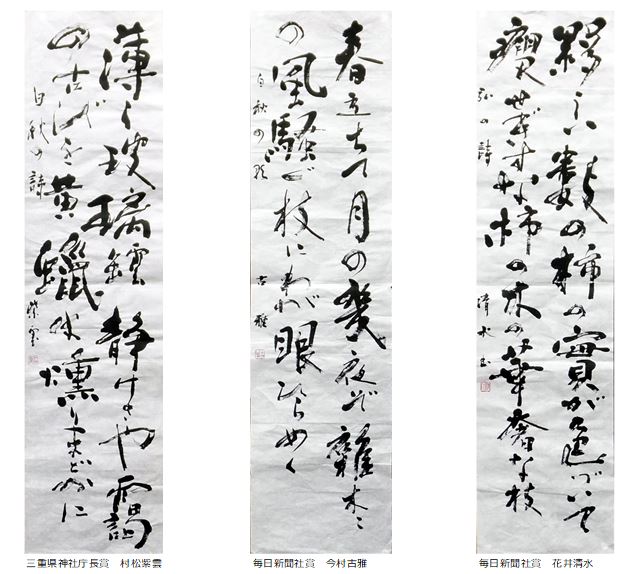 薄く玻璃 静けきや
の古びを黄蠟は燻りまどかに
白秋の詩
紫雲
三重県神社庁長賞　村松紫雲
春立ちて月の幾夜ぞ雑木々
の風騒ぐ枝にわが眼ひらめく
白秋の歌
古雅
毎日新聞社賞　今村古雅
夥しい数の柿の實が色づいて
痩せぎすな柿の木の華奢な枝
弘の詩
清水
毎日新聞社賞　花井清水